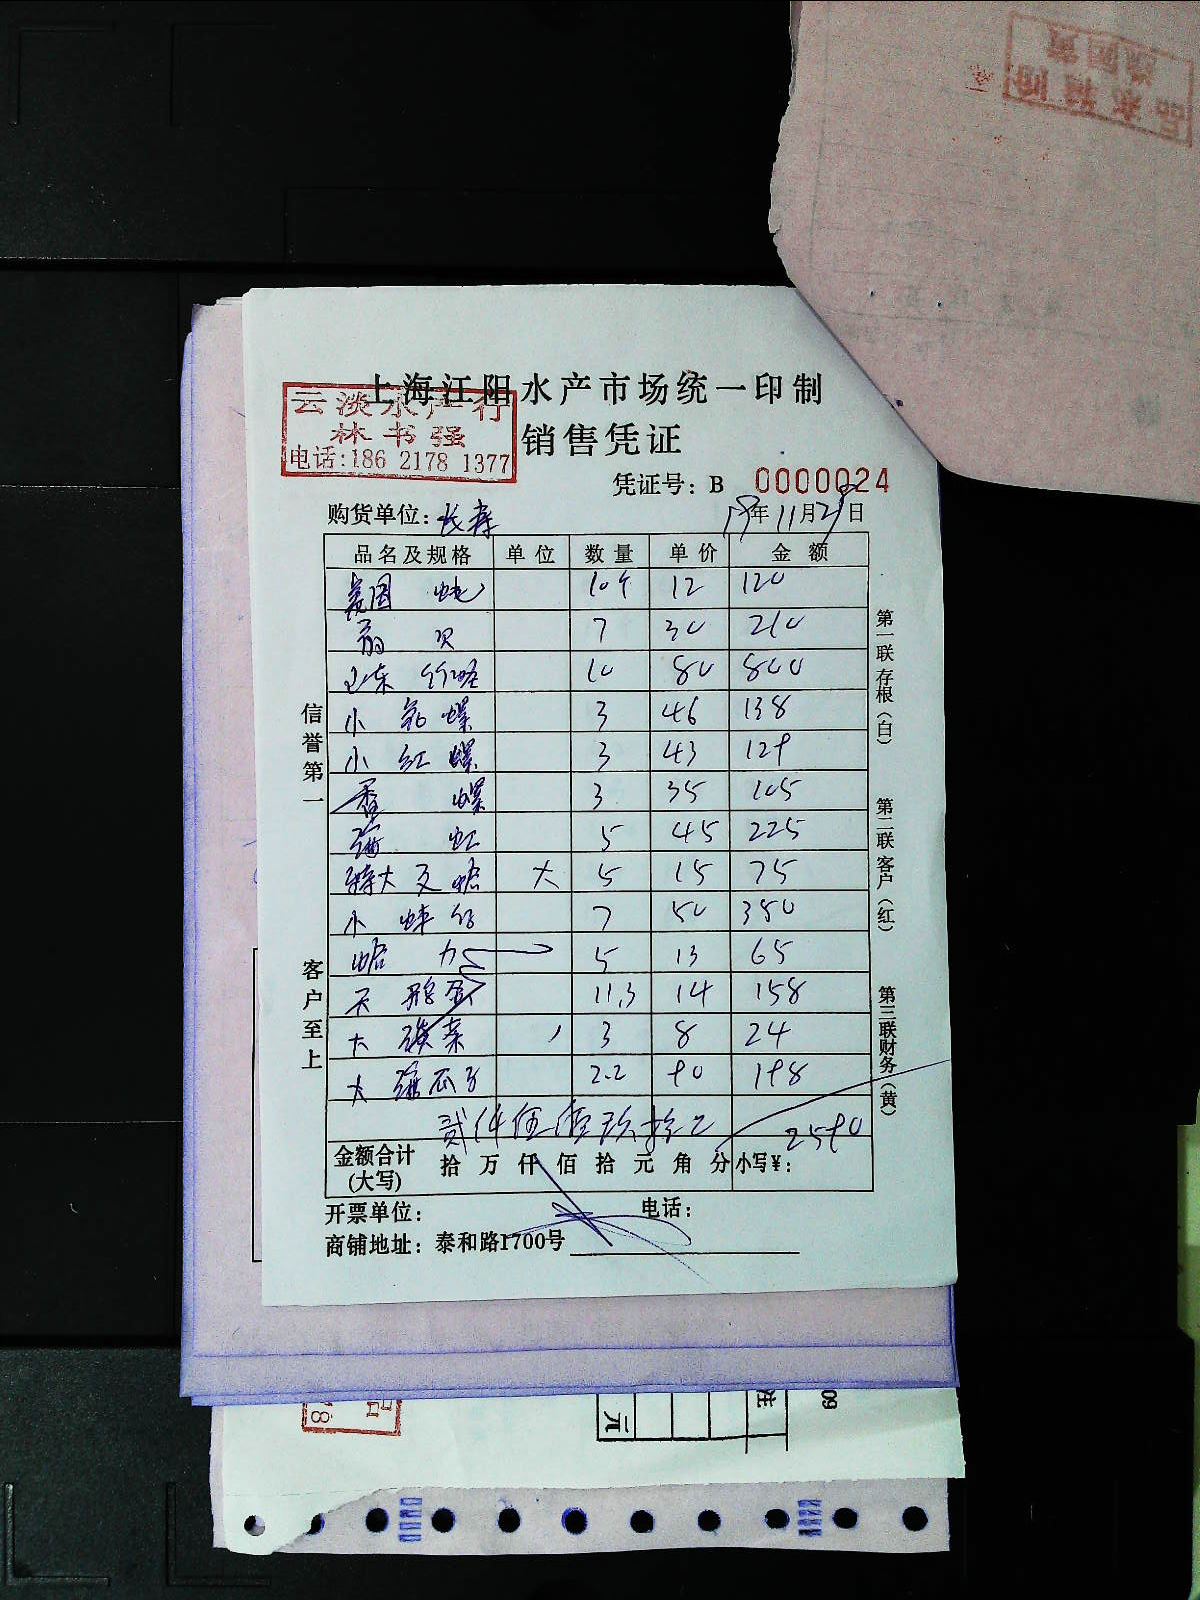 上海江阳水产市场统一印制
云淡水产行
林书强
电话:186 2178 1377
销售凭证
凭证号: B 0000024
购货单位: 长寿
19年11月29日
品名及规格 单位 数量 单价 金额
10个 12 120
7 30 210
山东 10 80 800
小 螺 3 46 138
小 红 螺 3 43 129
香 螺 3 35 105
海 虹 5 45 225
特大 文蛤 大 5 15 75
小 蚌仔 7 50 350
蛤 5 13 65
天 鹅蛋 11.3 14 158
大 3 8 24
大 海瓜子 2.2 90 198
贰仟伍佰玖拾元 2590
金额合计 (大写) 拾 万 仟 佰 拾 元 角 分 小写¥:
开票单位: 电话:
商铺地址: 泰和路1700号
信誉第一
客户至上
第一联 存根(白)
第二联 客户(红)
第三联 财务(黄)
元
09